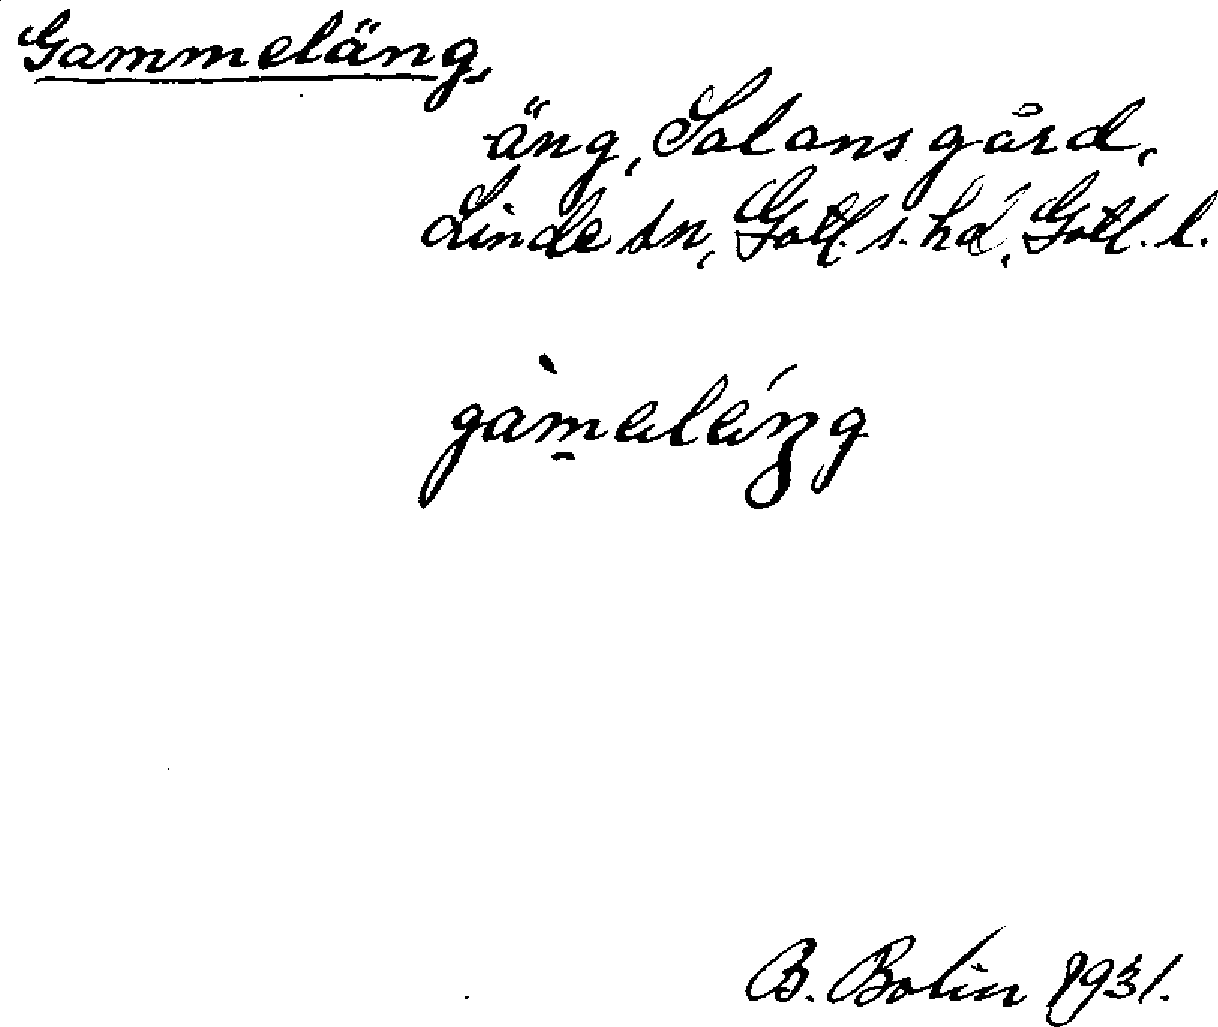 Gammeläng,
äng, Salans gård,
Linde sn, Gotl. s. hd, Gotl. l.
gàm̱eléŋg
B. Bolin 1931.